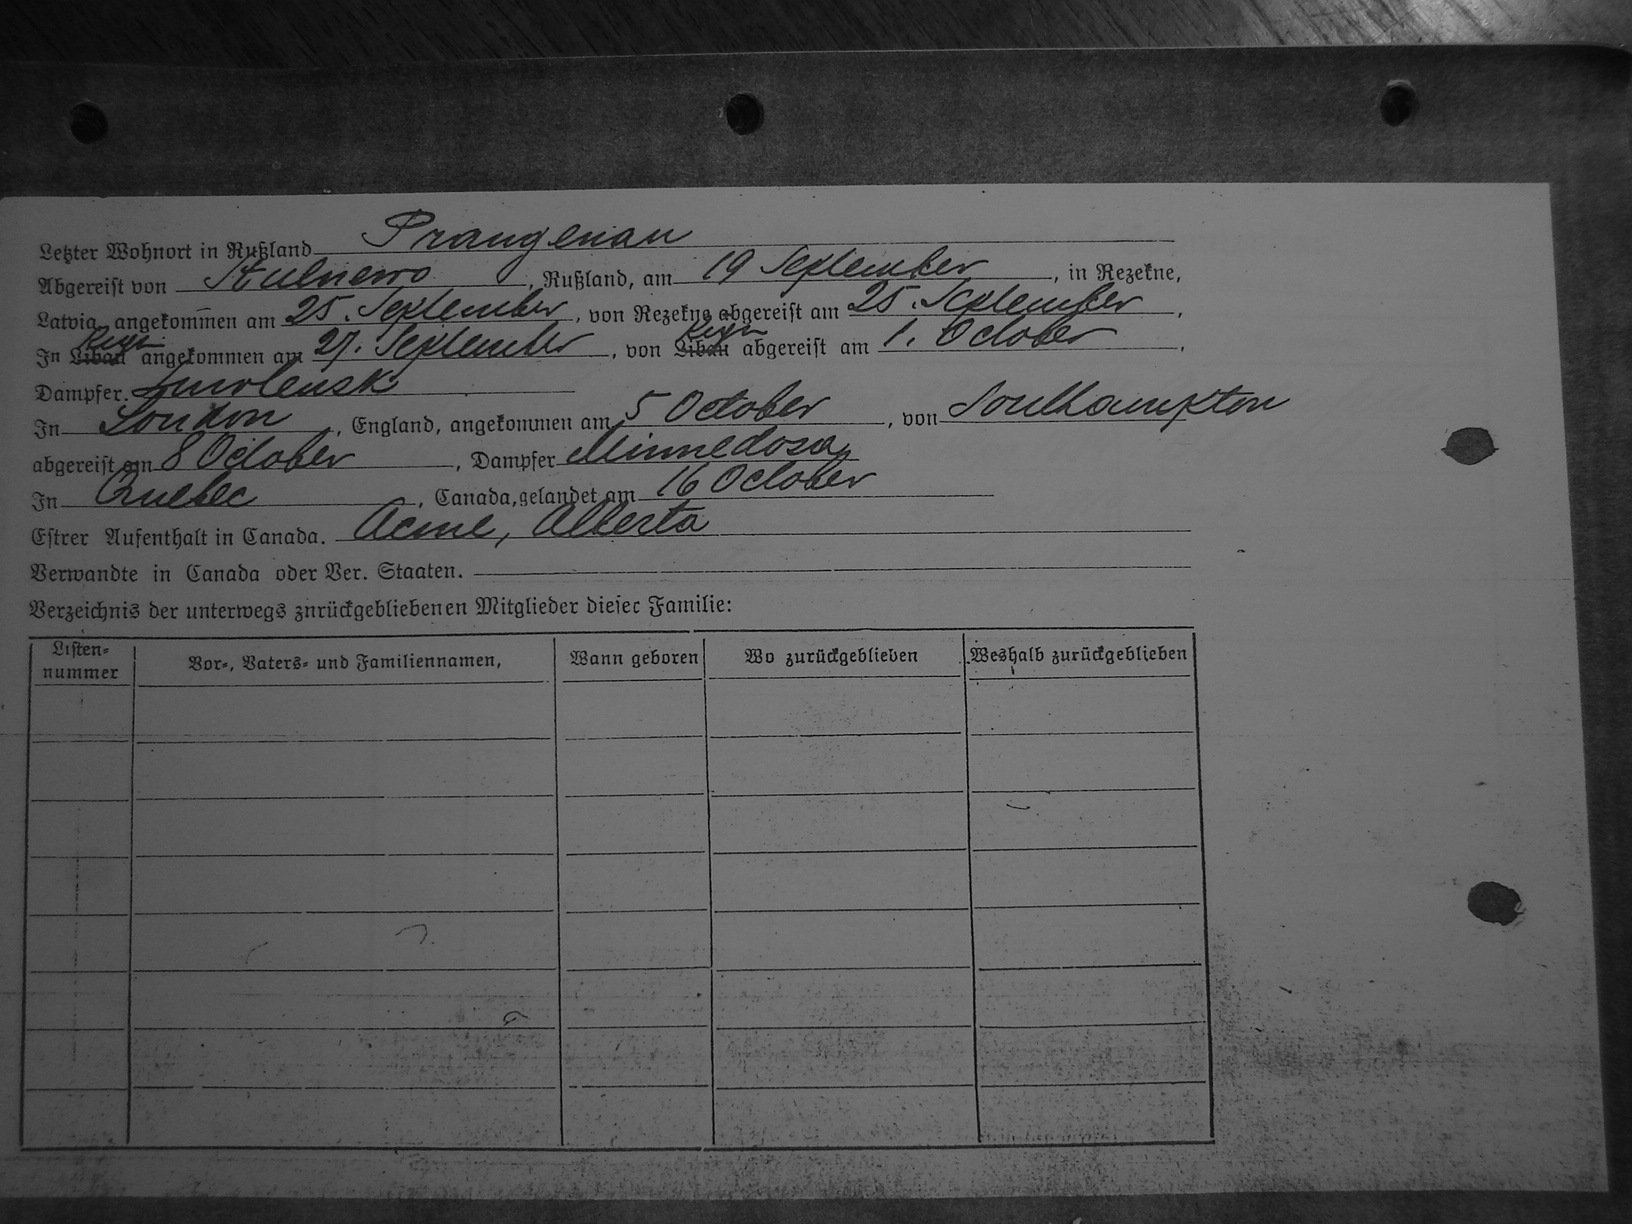 Letzter Wohnort in Rußland Prangenau
Abgereist von Stulnewo, Rußland, am 19 September, in Rezekne,
Latvia, angekommen am 25. September, von Rezekne abgereist am 25. September,
In Libau Riga angekommen am 27. September, von Libau Riga abgereist am 1. October,
Dampfer. Smolensk
In London, England, angekommen am 5 October, von Southampton
abgereist am 8 October, Dampfer Minnedosa,
In Quebec, Canada, gelandet am 16 October
Estrer Aufenthalt in Canada. Acme, Alberta
Verwandte in Canada oder Ver. Staaten.
Verzeichnis der unterwegs znrückgebliebenen Mitglieder diesec Familie:
Listen-
nummer
Vor-, Vaters- und Familiennamen,
Wann geboren
Wo zurückgeblieben
Weshalb zurückgeblieben